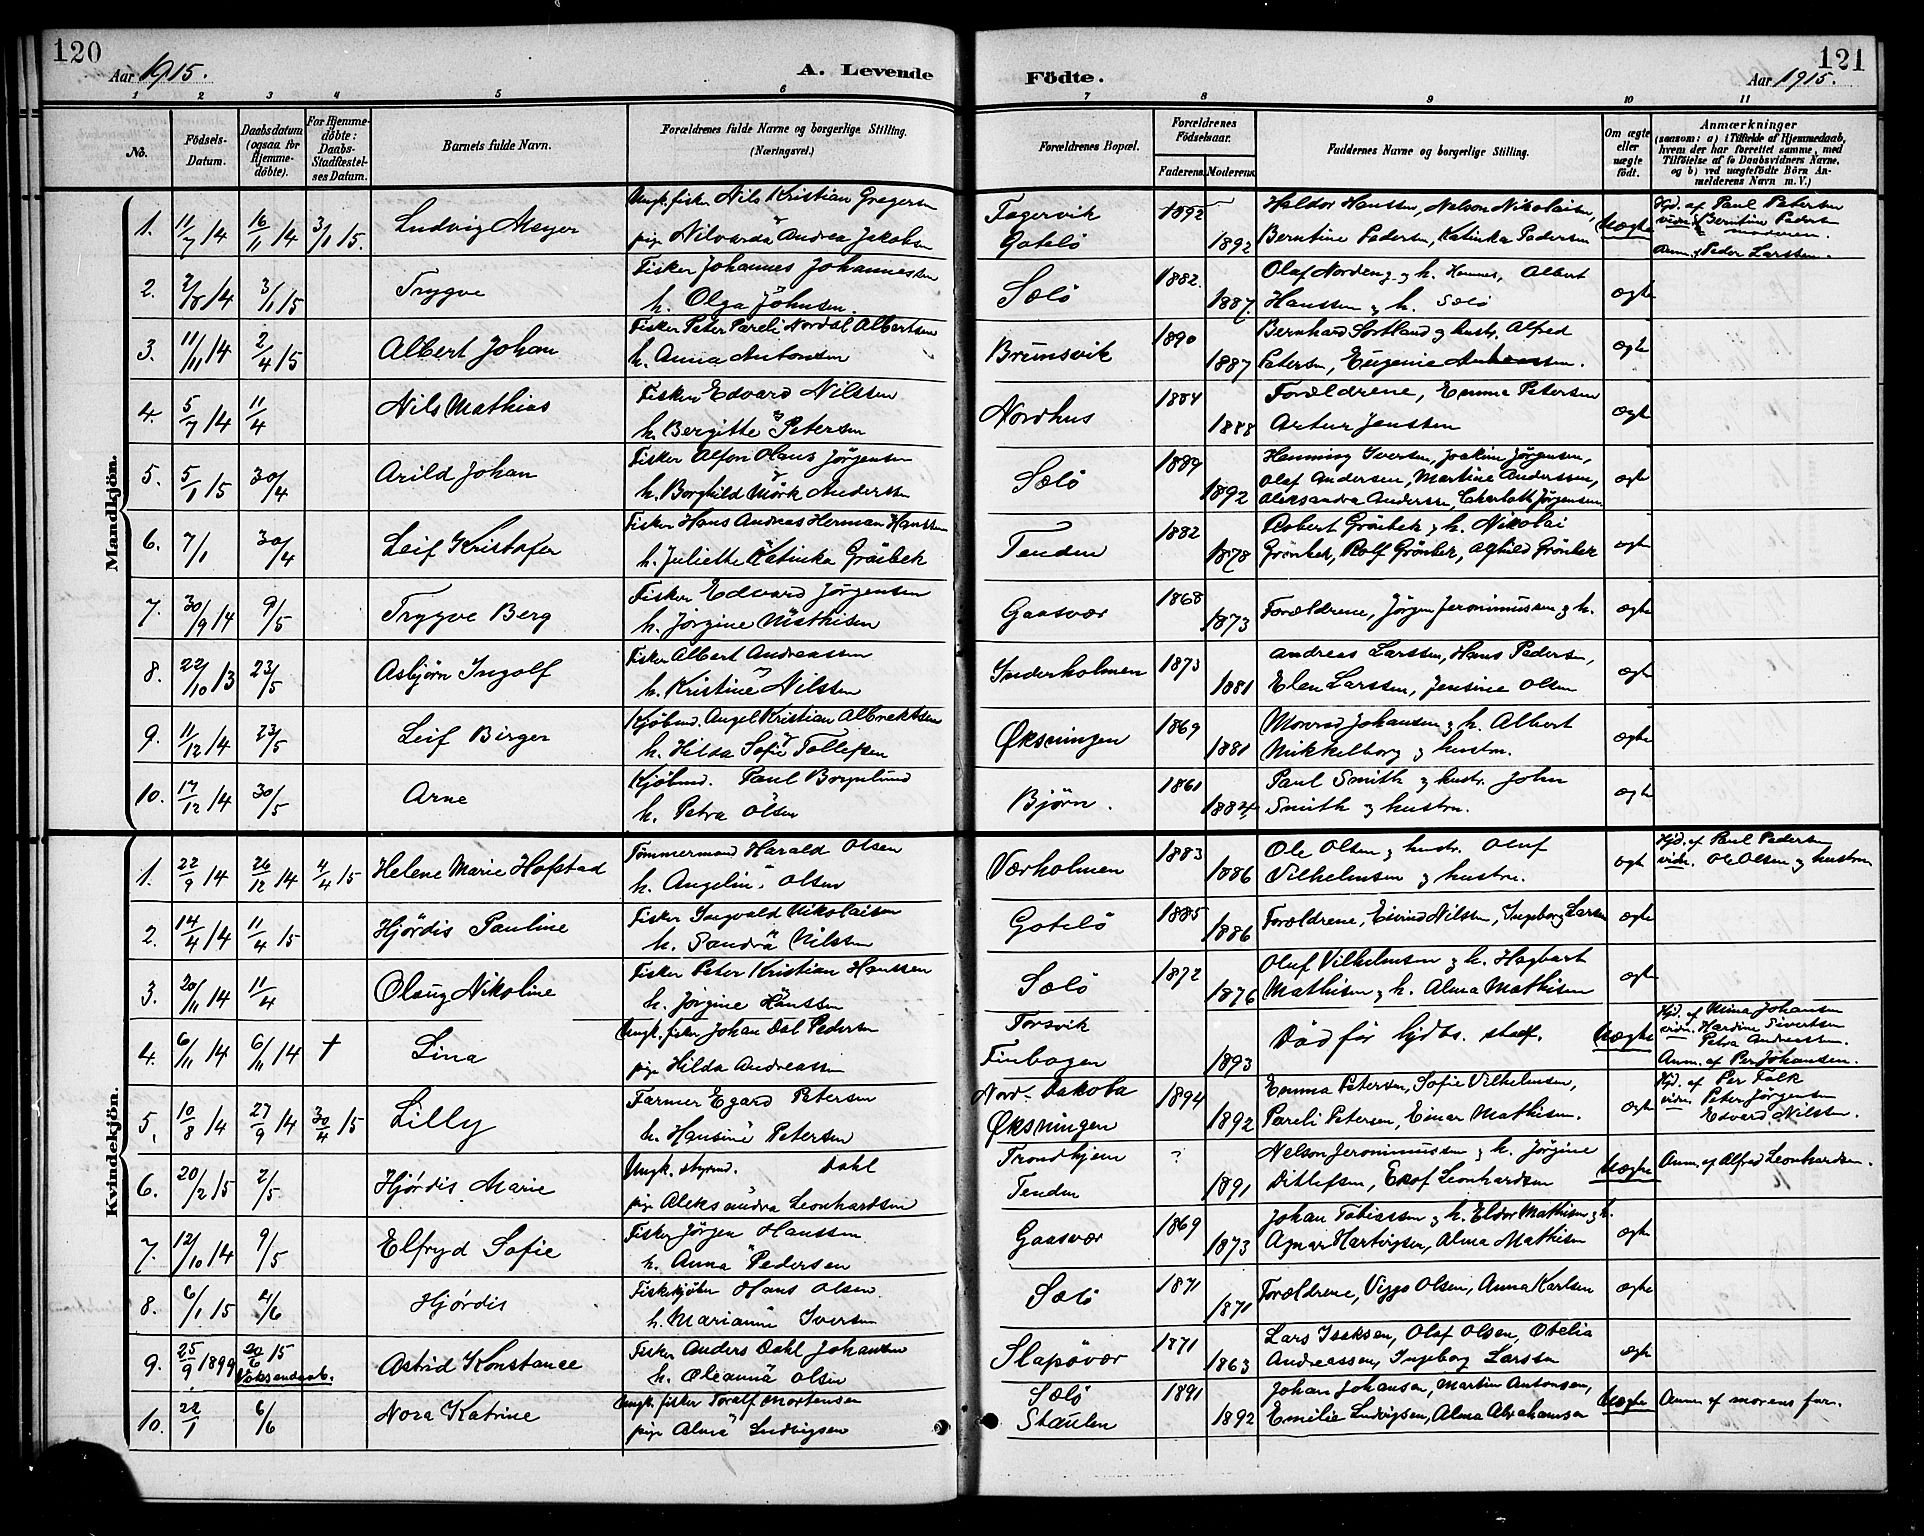 120
Aar 1915.
A. Levende
Födte.
121
Aar 1915.
1 2 3 4 5 6 7 8 9 10 11
No.
Födsels-Datum.
Daabsdatum (ogsaa for Hjemmedöbte).
For Hjemmedöbte: Daabs-Stadfæstelses Datum.
Barnets fulde Navn.
Forældrenes fulde Navne og borgerlige Stilling.
(Næringsvei.)
Forældrenes Bopæl.
Forældrenes Födselsaar.
Faderens. Moderens.
Faddernes Navne og borgerlige Stilling.
Om ægte eller uægte födt.
Anmærkninger
(saasom: a) i Tilfælde af Hjemmedaab, hvem der har forrettet samme, med Tilföielse af to Daabsvidners Navne, og b) ved uægtefödte Börn Anmelderens Navn m. V.)
Mandkjön.
1. 11/7 14 16/11 14 3/1 15. Ludvig Meyer
Ungk. fisker Nils Kristian Gregersen
pige Nilvarda Andrea Jakobsen
Fagervik
Gotelö
1892
1892
Haldor Hanssen, Nelson Nikolaisen,
Berntine Pedersen, Katinka Pedersen
Uægte
Hjd. af Paul Petersen
vidn. Berntine Pedersen
moderen.
Anm. af Peder Larssen.
2. 2/8 14 3/1 15 Trygve
Fisker Johannes Johannessen
h. Olga Johnsen.
Sælö
1882.
1887.
Olaf Nordeng og h. Hennes, Albert
Hanssen og h. Sælö
ægte
3. 11/11 14 2/4 15 Albert Johan
Fisker Peter Pareli Nordal Albertsen
h. Anna Antonsen
Brunsvik
1890
1887
Bernhard Sortland og hustr. Alfred
Petersen, Eugenie
ægte
4. 5/7 14 11/4 Nils Mathias
Fisker Edvard Nilssen
h. Bergitte Petersen
Nordhus
1884
1888
Forældrene, Emma Petersen
Artur Jenssen
ægte
5. 5/1 15 30/4 Arild Johan
Fisker Alfon Olaus Jörgensen
h. Borghild Mörk Andersen
Sælö
1889
1892
Henning Iversen, Joakim Jörgensen,
Olaf Andersen, Martine Anderssen,
Aleksandra Andersen, Charlotte Jörgensen
ægte
6. 7/1 30/4 Leif Kristofer
Fisker Hans Andreas Herman Hanssen
h. Juliette Katinka Gröibek
Tenden
1882
1878
Robert Gröibek og h. Nikolai
Grönbek, Rolf Grönbek, Aghild Grönbek
ægte
7. 30/9 14 9/5 Trygve Berg
Fisker Edvard Jörgensen
h. Jörgine Mathisen
Gaasvær
1868
1873
Forældrene, Jörgen Jeronimussen og h.
ægte
8. 22/10 13 23/5 Asbjörn Ingolf
Fisker Albert Andreassen
h. Kristine Nilssen
Inderholmen
1873
1881
Andreas Larssen, Hans Pedersen,
Elen Larssen, Jensine Olsen
ægte
9. 11/12 14 23/5 Leif Birger
Kjöbmd. Angel Kristian Albrektsen
h. Hilda Sofie Tollefsen
Øksningen
1869
1881
Monrad Johansen og h. Albert
Mikkelborg og hustru.
ægte
10. 17/12 14 30/5 Arne
Kjöbmd. Paul Borgelund
h. Petra Olsen
Bjørn.
1861
1884
Paul Smith og hustr. John
Smith og hustru.
ægte
Kvindekjön.
1. 22/9 14 26/12 14 4/4 15 Helene Marie Hofstad
Tömmermand Harald Olsen
h. Angelin. Olsen
Værholmen
1883
1886
Ole Olsen og hustr. Oluf
Vilhelmsen og hustru.
ægte
Hjd. af Paul Pedersen
vidn. Ole Olsen og hustru
2. 14/4 14 11/4 15 Hjördis Pauline
Fisker Ingvald Nikolaisen
h. Sandra Nilssen
Gotelö
1885
1886
Forældrene, Eivind Nilssen, Ingeborg Larsen
ægte
3. 20/11 14 11/4 Olaug Nikoline
Fisker Peter Kristian Hanssen
h. Jörgine Hanssen
Sælö
1872
1876
Oluf Vilhelmsen og h. Hagbart
Mathisen og h. Alma Mathisen
ægte
4. 6/11 14 6/11 14 † Lina
Ungk. fisker Johan Dal Pedersen
pige Hilda Andreassen
Forsvik
Finbogen
1893
Död för hjdbs. stadf.
Uægte
Hjd. af Mina Johansen
vidn. Hardine Sivertsen
Petra Andreassen.
Anm. af Per Johansen.
5. 10/8 14 27/9 14 30/4 15 Lilly
Farmer Egard Petersen
h. Hansine Petersen
Nord-Dakota
Øksningen
1894
1892
Emma Petersen, Sofie Vilhelmsen,
Pareli Petersen, Einar Mathisen.
ægte
Hjd. af Per Falk
vidn. Peter Jörgensen
Edvard Nilssen.
6. 20/2 15 2/5 Hjördis Marie
Ungk. styrmd. Dahl
pige Aleksandra Leonhardtsen
Trondhjem
Tenden
?
1891
Nelson Jeronimussen og h. Jörgine
Ditlefsen, Enof Leonhardsen
Uægte
Anm. af Alfred Leonhardsen.
7. 12/10 14 9/5 Elfryd Sofie
Fisker Jörgen Hanssen
h. Anna Pedersen
Gaasvær
1869
1873
Johan Tobiassen og h. Eldor Mathisen og h.
Agnar Hartvigsen, Alma Mathisen
ægte
8. 6/1 15 4/6 Hjördis
Fiskekjöber Hans Olsen
h. Marianne Iversen
Sælö
1871
1871
Forældrene, Viggo Olsen, Anna Karlsen
ægte
9. 25/9 1899 20/6 15 Voksendaab. Astrid Konstance
Fisker Anders Dahl Johansen
h. Oleanna Olsen
Slapövær
1871
1863
Lars Isaksen, Olaf Olsen, Otelia
Andreassen, Ingeborg Larssen
ægte
10. 22/1 6/6 Nora Katrine
Ungk. fisker Toralf Mortensen
pige Alma Ludvigsen
Sælö
Staulen
1891
1892
Johan Johansen, Martin Antonsen,
Emilie Ludvigsen, Alma Abrahamsen
Uægte
Anm. af morens far.